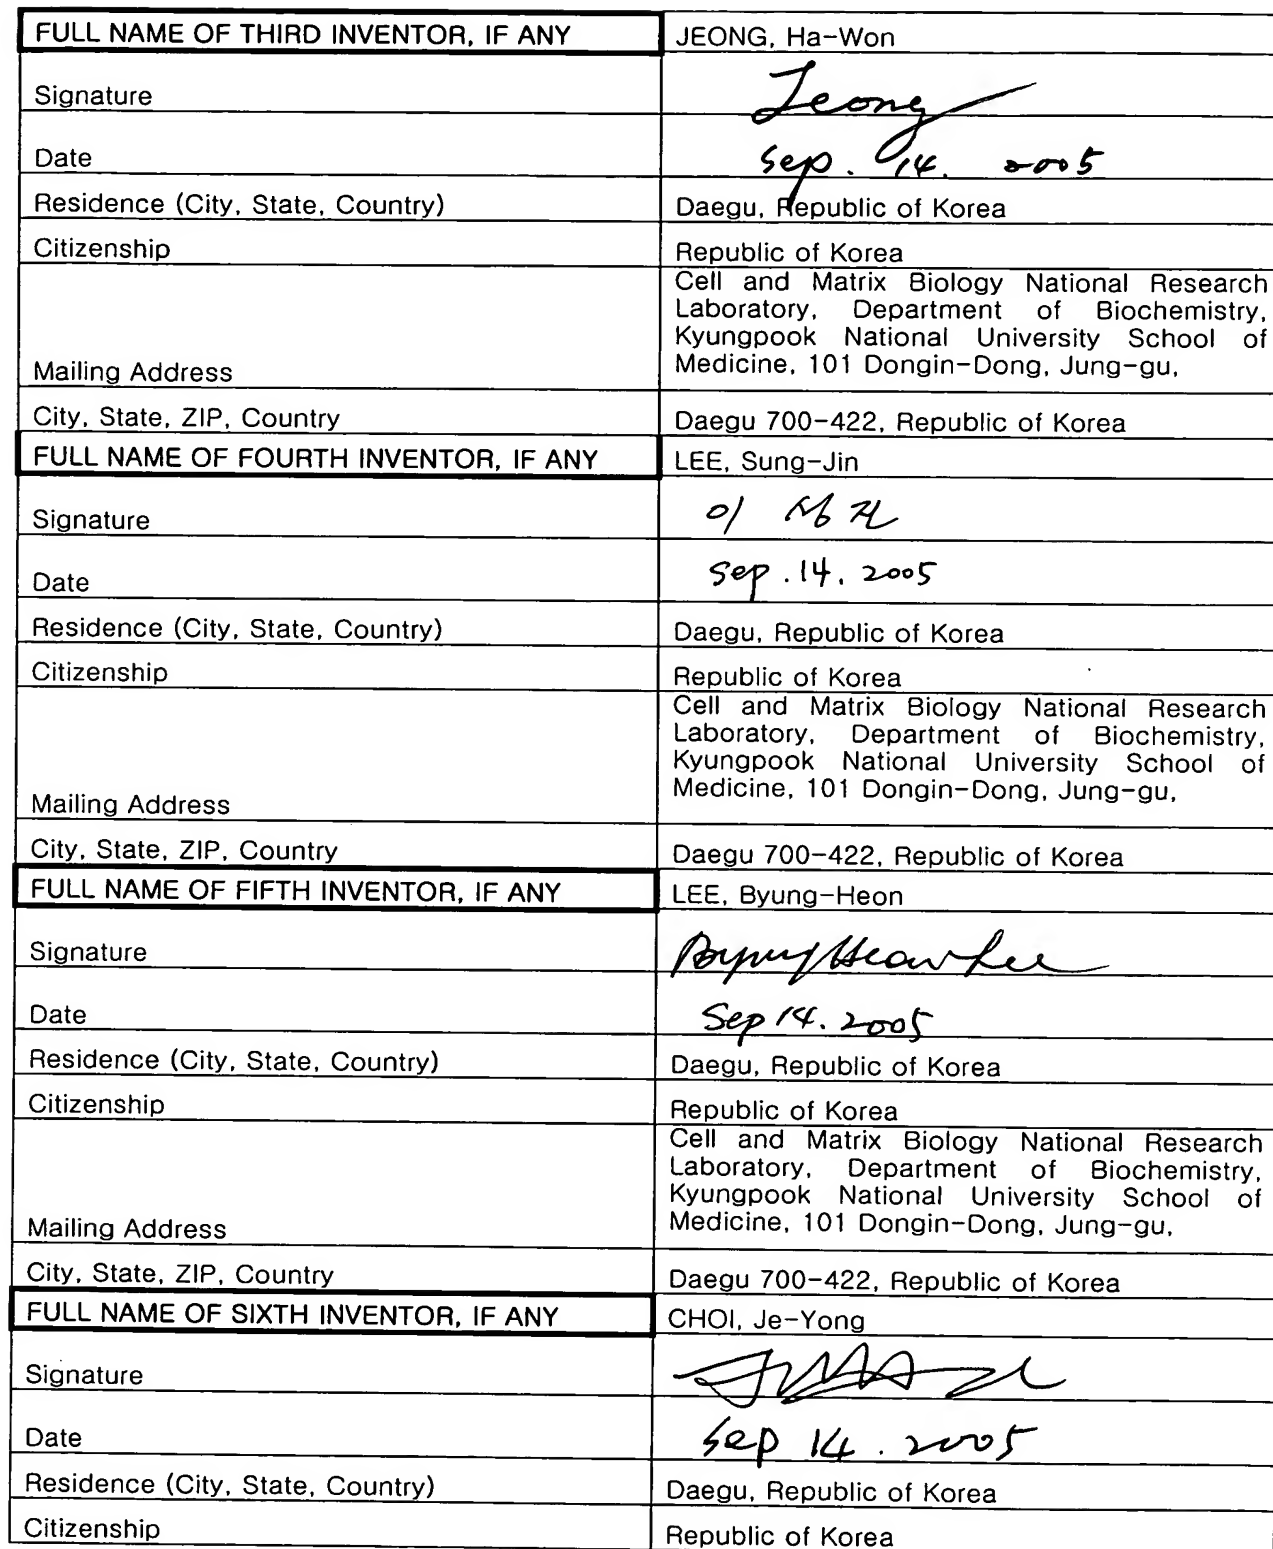 FULL NAME OF THIRD INVENTOR, IF ANY JEONG, Ha-Won
Signature Jeong
Date Sep. 14. 2005
Residence (City, State, Country) Daegu, Republic of Korea
Citizenship Republic of Korea
Cell and Matrix Biology National Research
Laboratory, Department of Biochemistry,
Kyungpook National University School of
Mailing Address Medicine, 101 Dongin-Dong, Jung-gu,
City, State, ZIP, Country Daegu 700-422, Republic of Korea
FULL NAME OF FOURTH INVENTOR, IF ANY LEE, Sung-Jin
Signature 이 성진
Date Sep. 14. 2005
Residence (City, State, Country) Daegu, Republic of Korea
Citizenship Republic of Korea
Cell and Matrix Biology National Research
Laboratory, Department of Biochemistry,
Kyungpook National University School of
Medicine, 101 Dongin-Dong, Jung-gu,
Mailing Address
City, State, ZIP, Country Daegu 700-422, Republic of Korea
FULL NAME OF FIFTH INVENTOR, IF ANY LEE, Byung-Heon
Signature Byung Heon Lee
Date Sep 14. 2005
Residence (City, State, Country) Daegu, Republic of Korea
Citizenship Republic of Korea
Cell and Matrix Biology National Research
Laboratory, Department of Biochemistry,
Kyungpook National University School of
Mailing Address Medicine, 101 Dongin-Dong, Jung-gu,
City, State, ZIP, Country Daegu 700-422, Republic of Korea
FULL NAME OF SIXTH INVENTOR, IF ANY CHOI, Je-Yong
Signature
Date Sep 14. 2005
Residence (City, State, Country) Daegu, Republic of Korea
Citizenship Republic of Korea